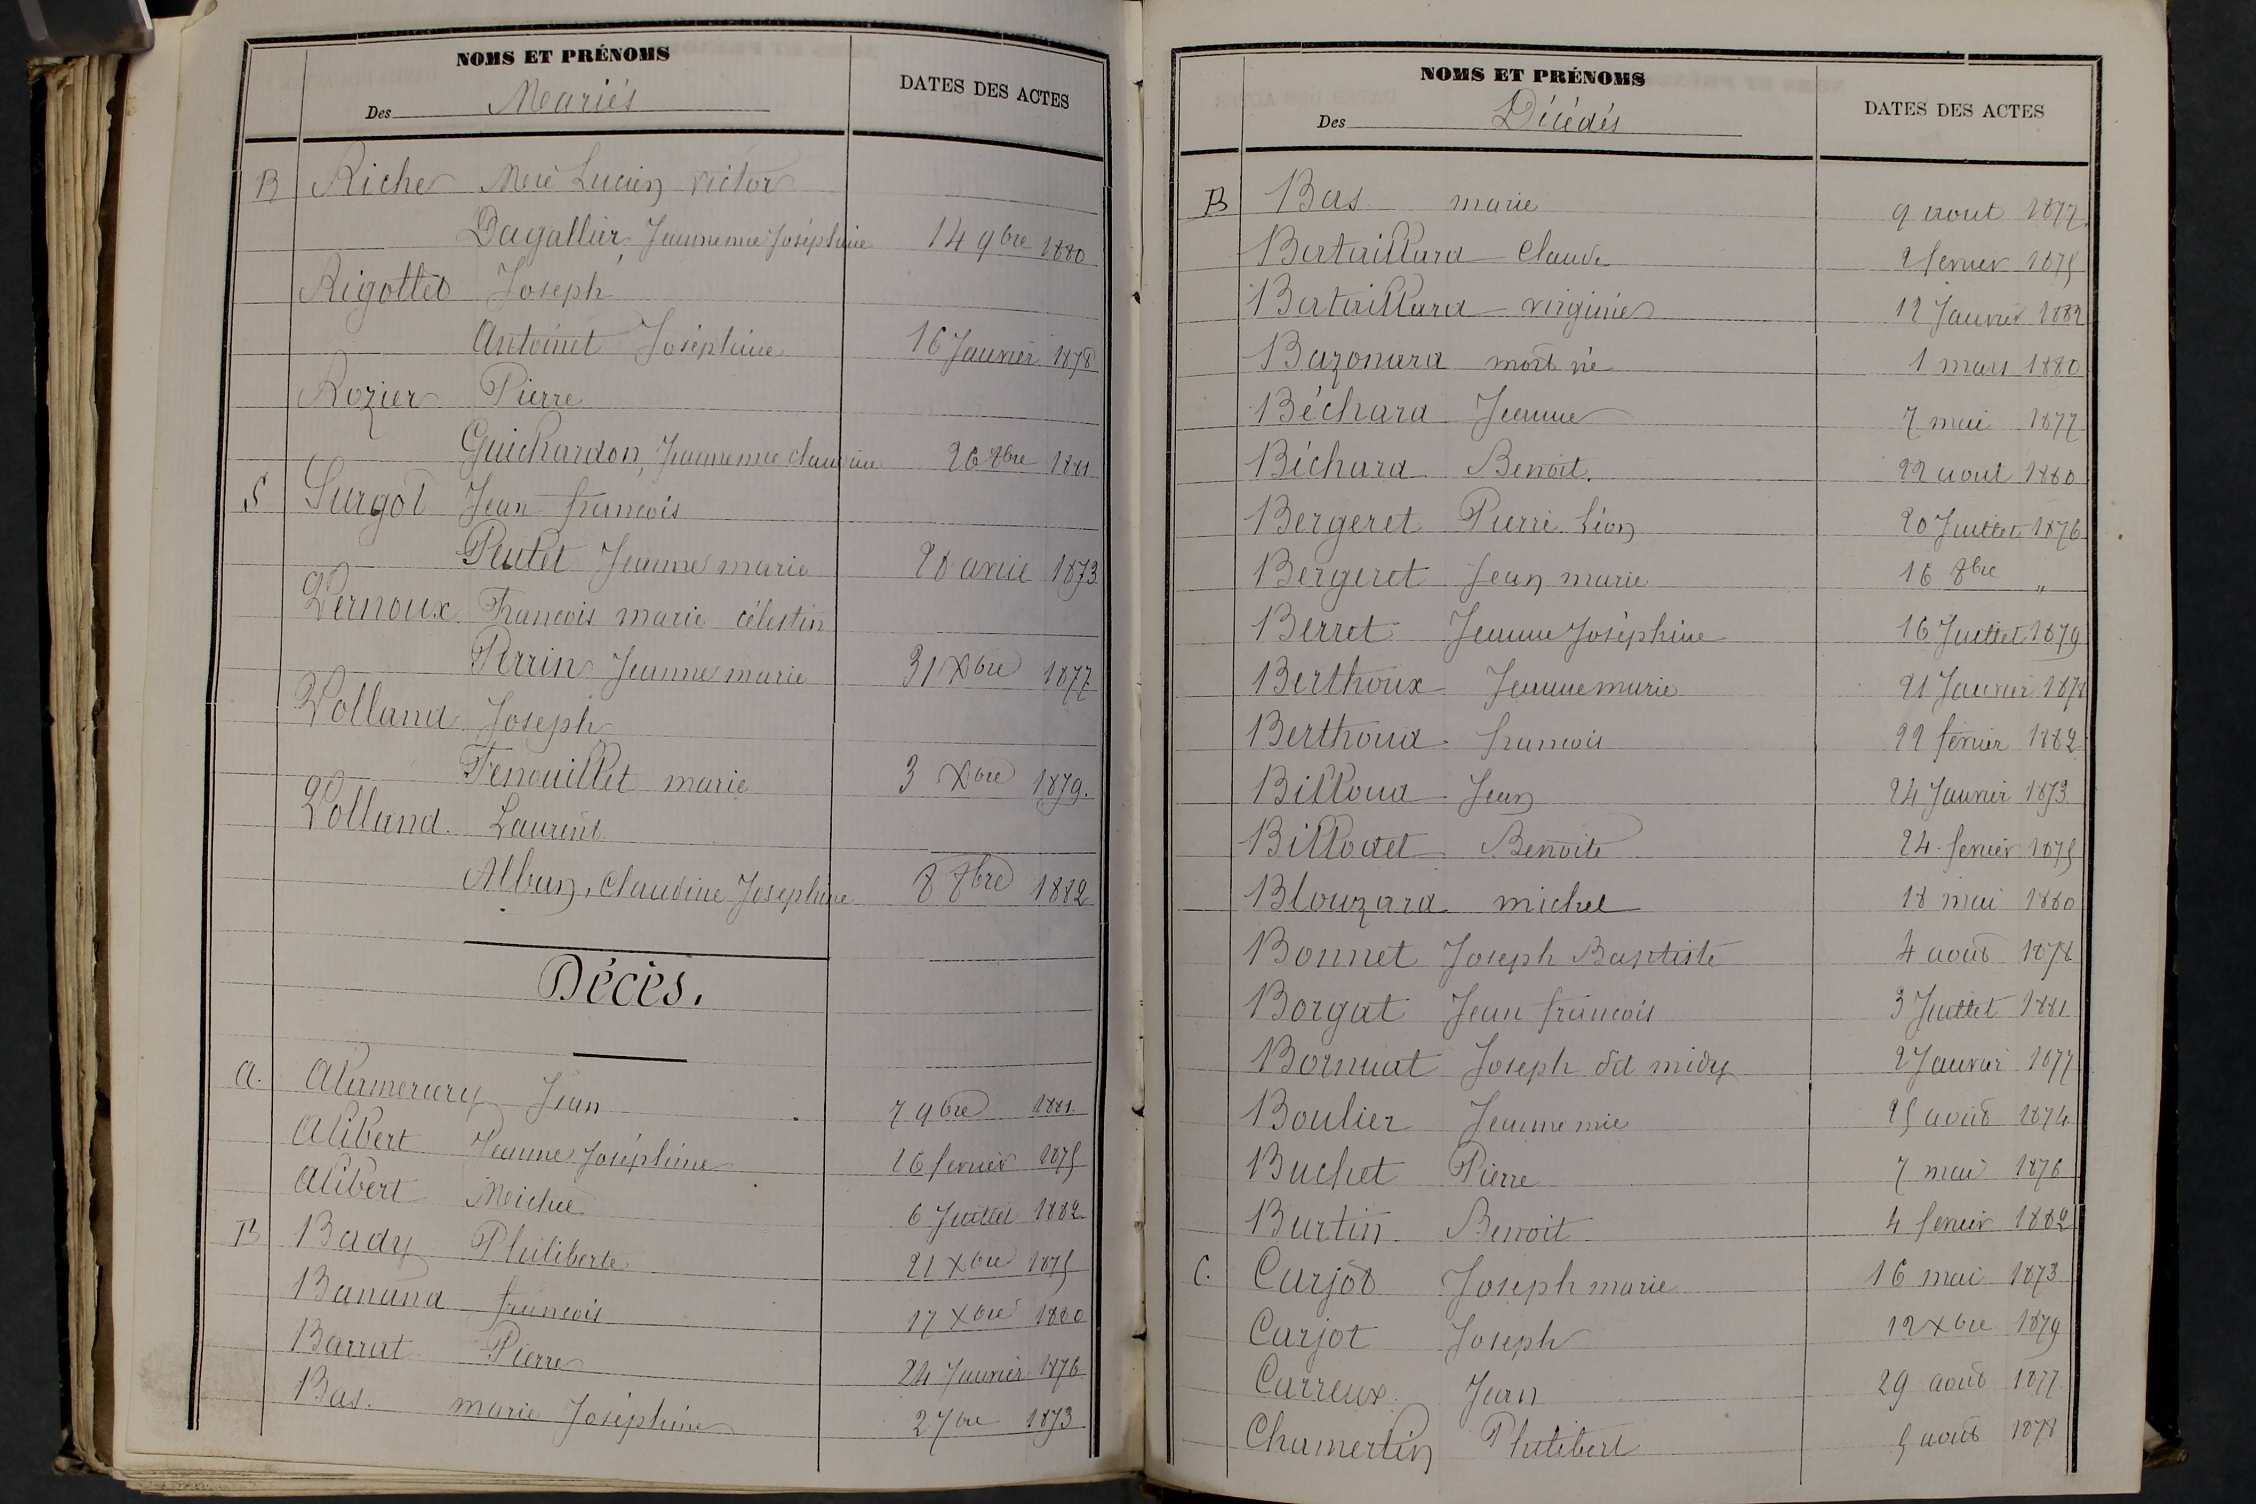 NOMS ET PRÉNOMS
DATES DES ACTES
Des Mariés
B Riche Mie Lucien victor
Dagallier, Jeannemie Joséphine 14 9bre 1880
Rigottet Joseph
Antoinet Joséphine 16 Janvier 1878
Rozier Pierre
Guichardon, Jeannemie claudine 26 8bre 1881
S Surgot Jean francois
Putet Jeanne marie 28 avril 1873
Vernoux Francois marie célestin
Perrin Jeanne marie 31 Xbre 1877
Volland Joseph
Fenouillet marie 3 Xbre 1879.
Volland. Laurent
Alban, Claudine Josephine 8 8bre 1882
Décès.
a. Alamercery Jean 7 9bre 1881
Alibert Jeanne Joséphine 26 fevrier 1875
Alibert Michel 6 Juillet 1882
B Bady Philiberte 21 Xbre 1875
Banand francois 17 Xbre 1880
Barrat Pierre 24 Janvier 1876
Bas. marie Joséphine 2 7bre 1873
NOMS ET PRÉNOMS
DATES DES ACTES
Des Décédés
B Bas marie 9 aout 1877
Bataillard Claude 2 fevrier 1875
Bataillard virginie 12 Janvier 1882
Bazonard mort né 1 mars 1880
Béchard Jeanne 7 mai 1877
Béchard Benoit. 22 aout 1880
Bergeret Pierre Léon 20 Juillet 1876
Bergeret Jean marie 16 8bre "
Berret Jeanne Joséphine 16 Juillet 1879
Berthoux Jeanne marie 21 Janvier 1878
Berthoud francois 22 février 1882
Billoud Jean 24 Janvier 1873
Billodet Benoite 24 fevrier 1875
Blouzard michel 18 mai 1880
Bonnet Joseph Baptiste 4 août 1878
Borgat Jean francois 3 Juillet 1881
Bornuat Joseph dit midy 2 Janvier 1877
Boulier Jeanne mie 25 août 1874
Buchet Pierre 7 mai 1876
Burtin Benoit 4 fevrier 1882
C. Carjot Joseph marie 16 mai 1873
Carjot Joseph 12 Xbre 1879
Carreux Jean 29 août 1877
Chamerlin Philibert 5 août 1878